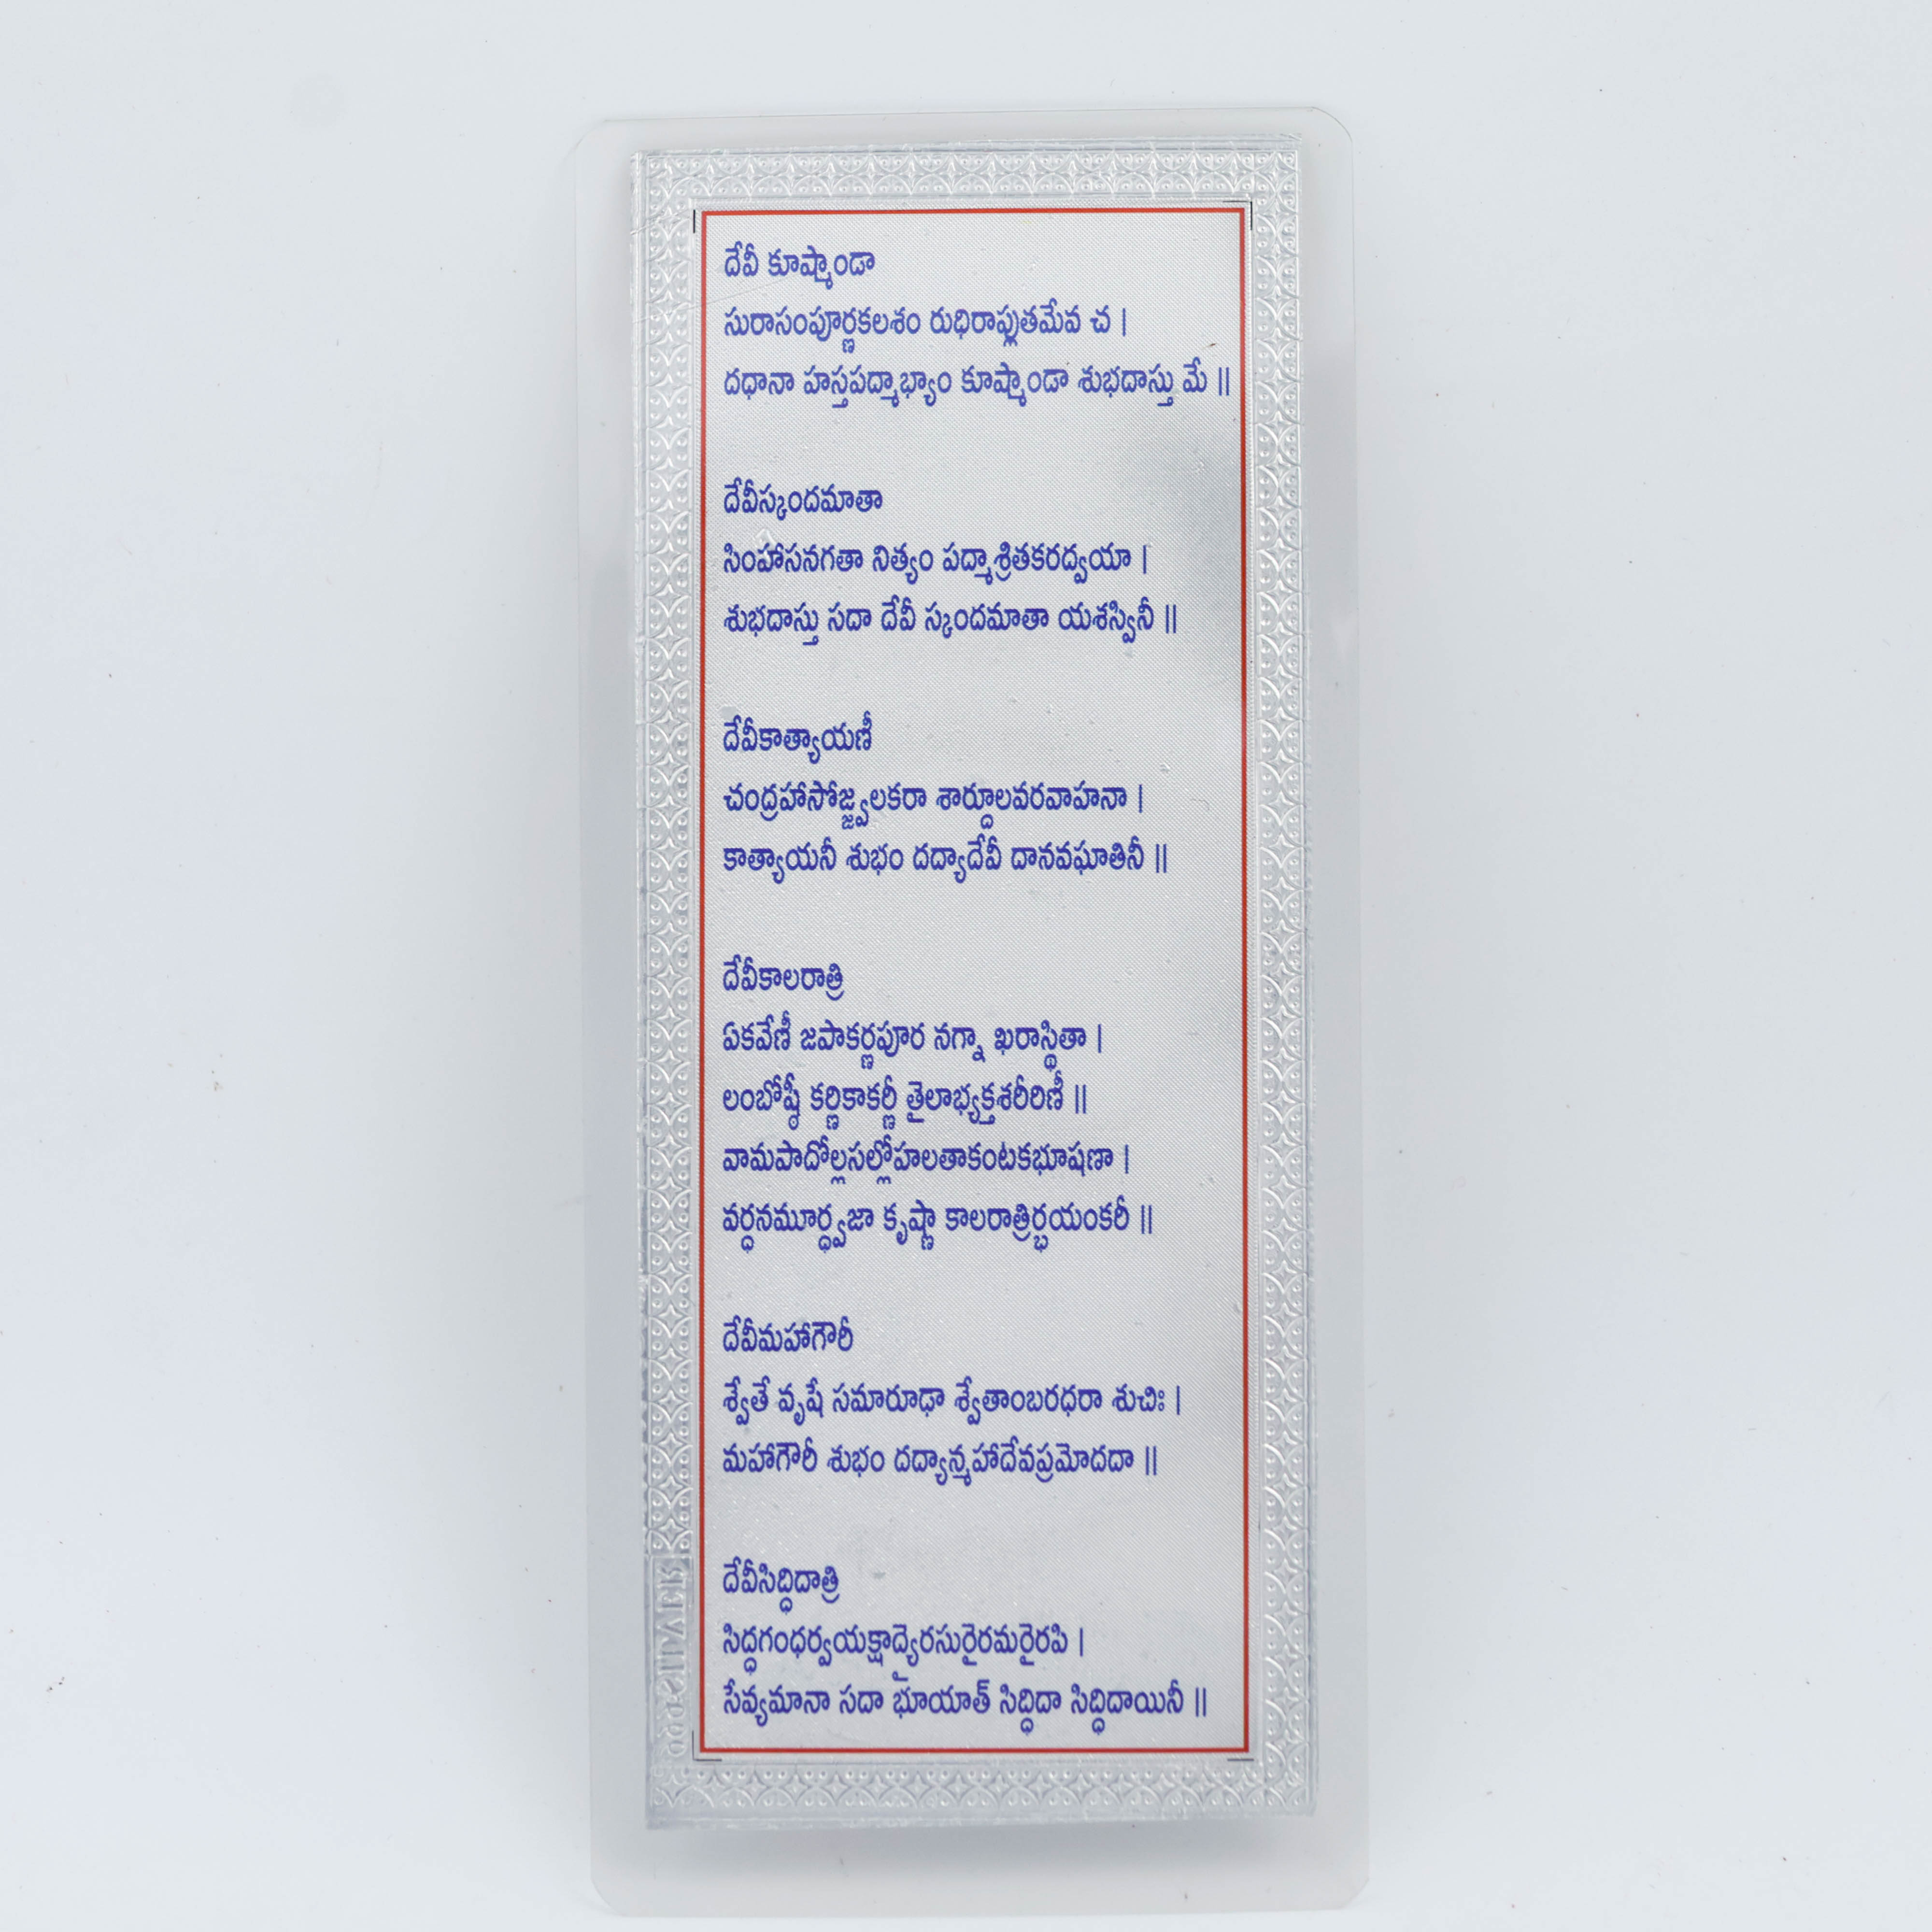 దేవీ కూష్మాండా
సురాసంపూర్ణకలశం రుధిరాప్లుతమేవ చ |
దధానా హస్తపద్మాభ్యాం కూష్మాండా శుభదాస్తు మే ||
దేవీస్కందమాతా
సింహాసనగతా నిత్యం పద్మాశ్రితకరద్వయా |
శుభదాస్తు సదా దేవీ స్కందమాతా యశస్వినీ ||
దేవీకాత్యాయణీ
చంద్రహాసోజ్జ్వలకరా శార్దూలవరవాహనా |
కాత్యాయనీ శుభం దద్యాదేవీ దానవఘాతినీ ||
దేవీకాలరాత్రి
ఏకవేణీ జపాకర్ణపూర నగ్నా ఖరాస్థితా |
లంబోష్ఠీ కర్ణికాకర్ణీ తైలాభ్యక్తశరీరిణీ ||
వామపాదోల్లసల్లోహలతాకంటకభూషణా |
వర్ధనమూర్ధ్వజా కృష్ణా కాలరాత్రిర్భయంకరీ ||
దేవీమహాగౌరీ
శ్వేతే వృషే సమారూఢా శ్వేతాంబరధరా శుచిః |
మహాగౌరీ శుభం దద్యాన్మహాదేవప్రమోదదా ||
దేవీసిద్ధిదాత్రి
సిద్ధగంధర్వయక్షాద్యైరసురైరమరైరపి |
సేవ్యమానా సదా భూయాత్ సిద్ధిదా సిద్ధిదాయినీ ||
999 SILVER